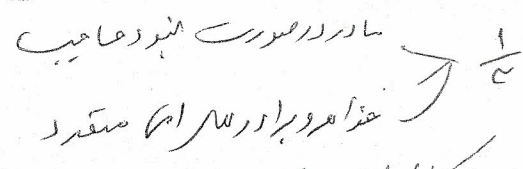 ۱/۳ مادر در صورت نبود حاجب
خواهر و برادر امی متعدد